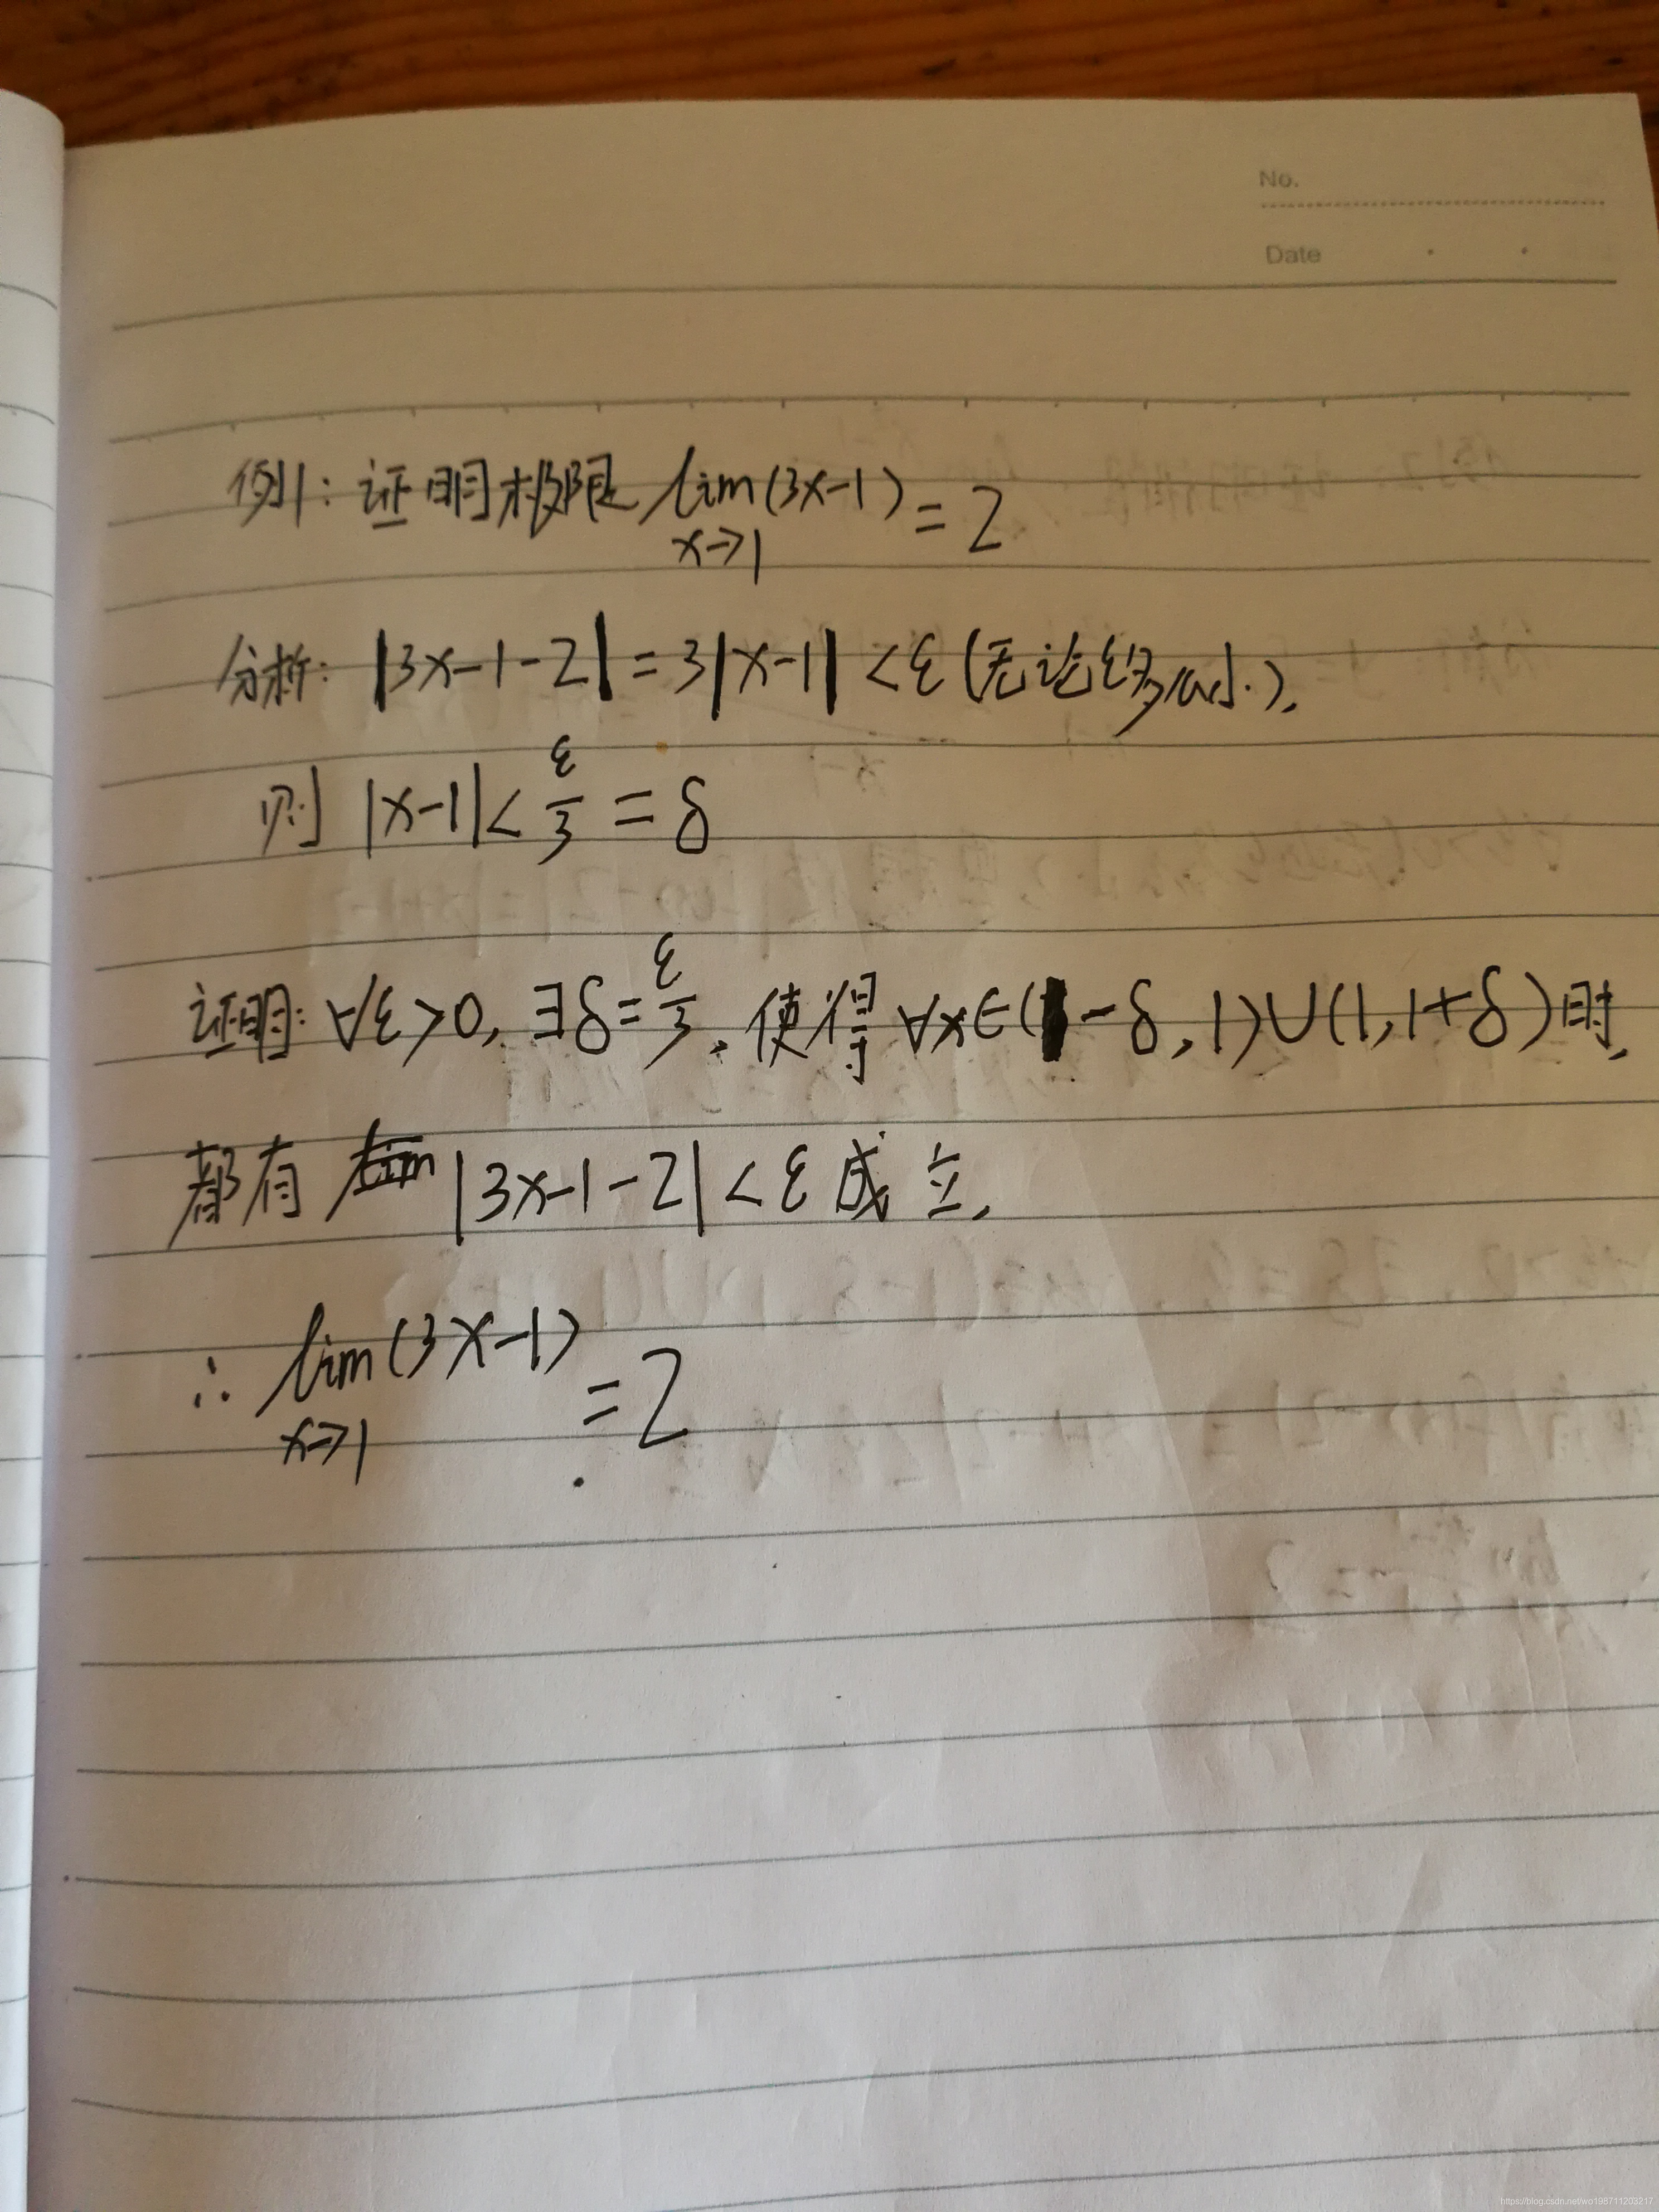 No.
Date
例1: 证明极限 lim(3x-1) = 2
x→1
分析: |3x-1-2| = 3|x-1| < ε (无论ε多么小).
则 |x-1| < ε/3 = δ
证明: ∀ε>0, ∃δ=ε/3, 使得 ∀x∈(1-δ,1)∪(1,1+δ)时,
都有 |3x-1-2| < ε 成立.
∴ lim(3x-1) = 2
x→1
https://blog.csdn.net/wo198711203217